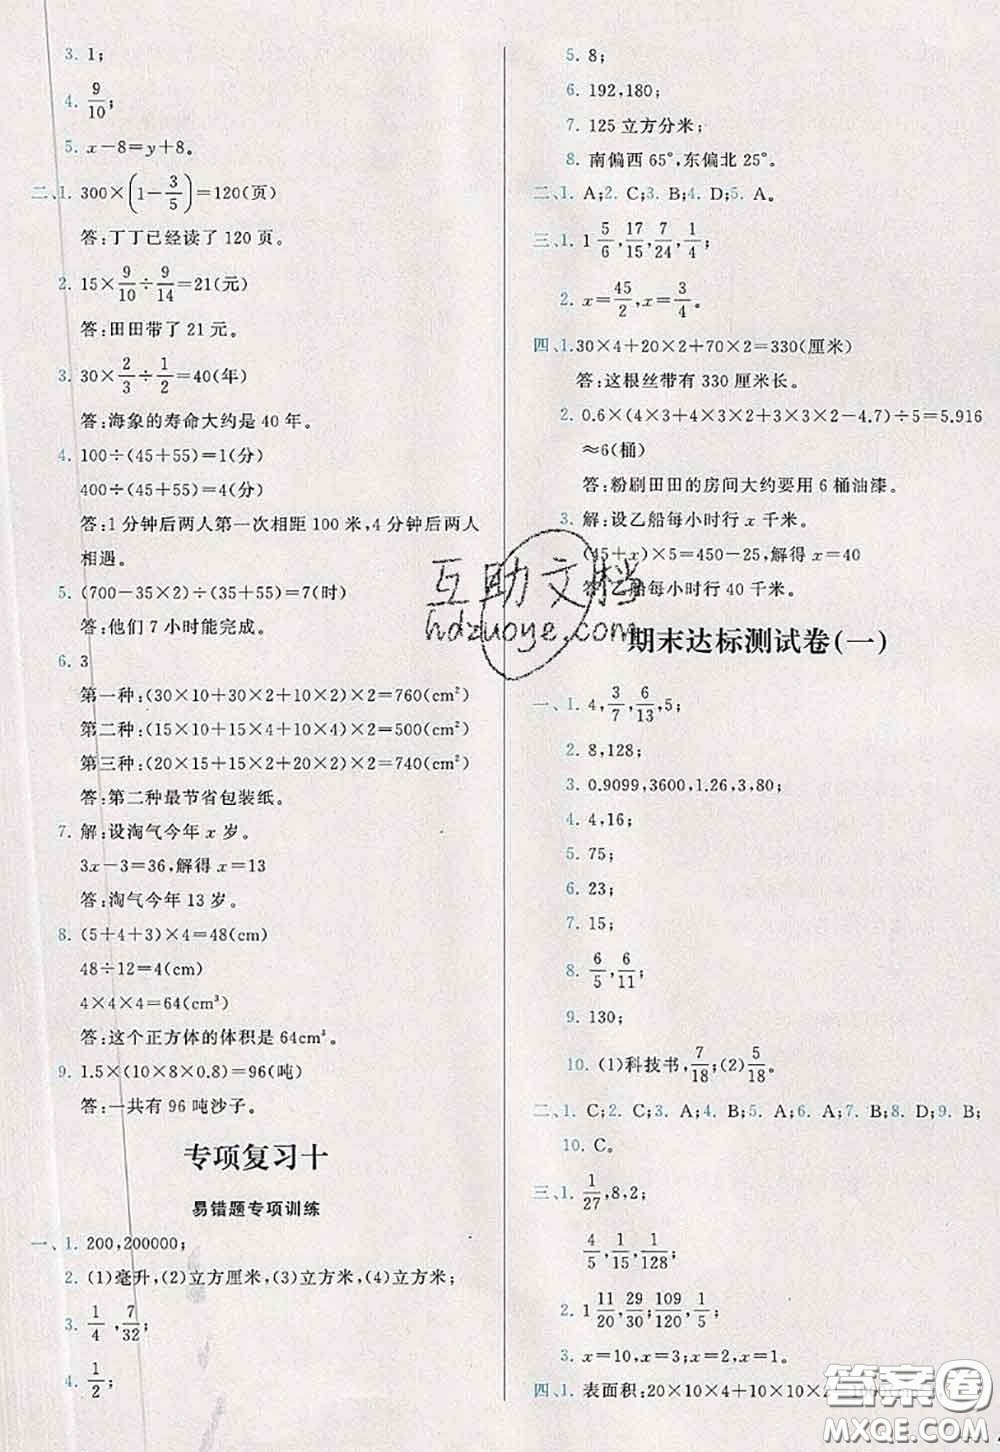 3. 1;
4. 9/10;
5. x-8=y+8。
二、1. 300×(1-3/5)=120(页)
答:丁丁已经读了 120 页。
2. 15×9/10÷9/14=21(元)
答:田田带了 21 元。
3. 30×2/3÷1/2=40(年)
答:海象的寿命大约是 40 年。
4. 100÷(45+55)=1(分)
400÷(45+55)=4(分)
答:1 分钟后两人第一次相距 100 米,4 分钟后两人
相遇。
5. (700-35×2)÷(35+55)=7(时)
答:他们 7 小时能完成。
6. 3
第一种:(30×10+30×2+10×2)×2=760(cm²)
第二种:(15×10+15×4+10×4)×2=500(cm²)
第三种:(20×15+15×2+20×2)×2=740(cm²)
答:第二种最节省包装纸。
7. 解:设淘气今年 x 岁。
3x-3=36,解得 x=13
答:淘气今年 13 岁。
8. (5+4+3)×4=48(cm)
48÷12=4(cm)
4×4×4=64(cm³)
答:这个正方体的体积是 64cm³。
9. 1.5×(10×8×0.8)=96(吨)
答:一共有 96 吨沙子。
专项复习十
易错题专项训练
一、1. 200,200000;
2. (1)毫升,(2)立方厘米,(3)立方米,(4)立方米;
3. 1/4,7/32;
4. 1/2;
5. 8;
6. 192,180;
7. 125 立方分米;
8. 南偏西 65°,东偏北 25°。
二、1. A;2. C;3. B;4. D;5. A。
三、1. 1 5/6,17/15,7/24,1/4;
2. x=45/2,x=3/4。
四、1. 30×4+20×2+70×2=330(厘米)
答:这根丝带有 330 厘米长。
2. 0.6×(4×3+4×3×2+3×3×2-4.7)÷5=5.916
≈6(桶)
答:粉刷田田的房间大约要用 6 桶油漆。
3. 解:设乙船每小时行 x 千米。
(45+x)×5=450-25,解得 x=40
答:乙船每小时行 40 千米。
互助文档
hdzuoye.com
期末达标测试卷(一)
一、1. 4,3/7,6/13,5;
2. 8,128;
3. 0.9099,3600,1.26,3,80;
4. 4,16;
5. 75;
6. 23;
7. 15;
8. 6/5,6/11;
9. 130;
10. (1)科技书,7/18;(2)5/18。
二、1. C;2. C;3. A;4. B;5. A;6. A;7. B;8. D;9. B;
10. C。
三、1. 1/27,8,2;
4/5,1/15,1/128;
2. 1 11/20,29/30;109/120,1/5;
3. x=10,x=3;x=2,x=1。
四、1. 表面积:20×10×4+10×10×2
答案圈
MXQE.COM